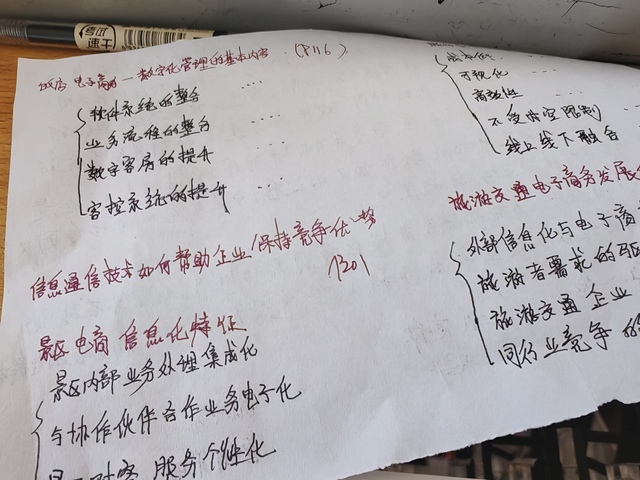 考试
速干
饭店电子商务—数字化管理的基本内容 (P116)
软件系统的整合 ....
业务流程的整合 ...
数字客房的提升 ...
客控系统的提升 ...
信息通信技术如何帮助企业保持竞争优势
P201
景区电商信息化特征
景区内部业务处理集成化
与协作伙伴合作业务电子化
服务个性化
可视化 ...
高效性 ...
不受时空限制
线上线下融合
旅游交通电子商务发展
外部信息化与电子商
旅游者需求的驱
旅游交通企业
同行业竞争的